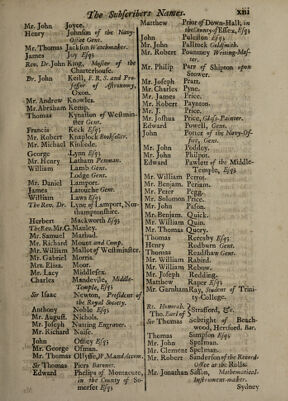 The Subscribers Names. xiii
Mr. John Joyce.
Henry Johnson of the Navy-
Office Gent.
Mr. Thomas Jackson Watchmaker.
James Joy Esq;
Rev. Dr. John King, Master of the
Charterhouse.
Dr. John Keill, F. R. S. and Pro-
fessor of Astronomy,
Oxon.
Mr. Andrew Knowles.
Mr. Abraham Kemp.
Thomas Kynaston of Westmin-
ster Gent.
Francis Keck Esq;
Mr. Robert Knaplock Bookseller.
Mr. Michael Kinlode.
George Lynn Esq;
Mr. Henry Latham Penman.
William Lamb Gent.
Lodge Gent.
Mr. Daniel Lamport.
James Larouche Gent.
William Laws Esq;
The Rev. Dr. Lyne of Lamport, Nor-
thamptonshire.
Herbert Mackworth Esq;
The Rev. Mr. G. Manley.
Mr. Samuel Marband.
Mr. Richard Mount and Comp.
Mr. William Mallot of Westminster.
Mr. Gabriel Morris.
Mrs. Eliza. Moor.
Mr. Lacy Middlesex.
Charles Mandeville, Middle-
Temple, Esq;
Sir Isaac Newton, President of
the Royal Society.
Anthony Noble Esq;
Mr. August. Nichols.
Mr. Joseph Nutting Engraver.
Mr. Richard Neale.
John Offley Esq;
Mr. George Osman.
Mr. Thomas
Sir Thomas Piers Baronet.
Edward Phelips of Montacute,
in the County of So-
merset Esq;
Matthew Prior of Down-Hall, in
the County of Essex, Esq;
John Puleston Esq;
Mr. John Paltock Goldsmith.
Mr. Robert Pountney Writing-Mas-
ter.
Mr. Philip Parr of Shipton upon
Stower.
Mr. Joseph Pratt.
Mr. Charles Pyne.
Mr. James Price.
Mr. Robert Payston.
Mr. J. Price.
Mr. Joshua Price, Glass-Painter.
Edward Powell, Gent.
John Porter of the Navy-Of-
fice, Gent.
Mr. John Poddoy.
Mr. John Philpot.
Edward Pawlett of the Middle-
Temple, Esq;
Mr. William Perrot.
Mr. Benjam. Periam.
Mr. Peter Pegg.
Mr. Solomon Price.
Mr. John Pixton.
Mr. Benjam. Quick.
Mr. William Quin.
Mr. Thomas Query.
Thomas Reresby Esq;
Henry Redburn Gent.
Thomas Readshaw Gent.
Mr. William Rabird.
Mr. William Rebow.
Mr. Joseph Redding.
Matthew Raper Esq;
Mr. Garnham Ray, Student of Trini-
ty-College.
Rt. Honorab.
Tho. Earl of Strafford, &c.
Sir Thomas Sebright of Beach-
wood, Hertford. Bar.
Thomas Simpson Esq;
Mr. John Spelman.
Mr. Clement Spelman.
Mr. Robert Sanderson of the Record-
Office at the Rolls.
Mr. Jonathan Sisson, Mathematical-
Instrument-maker.
Sydney